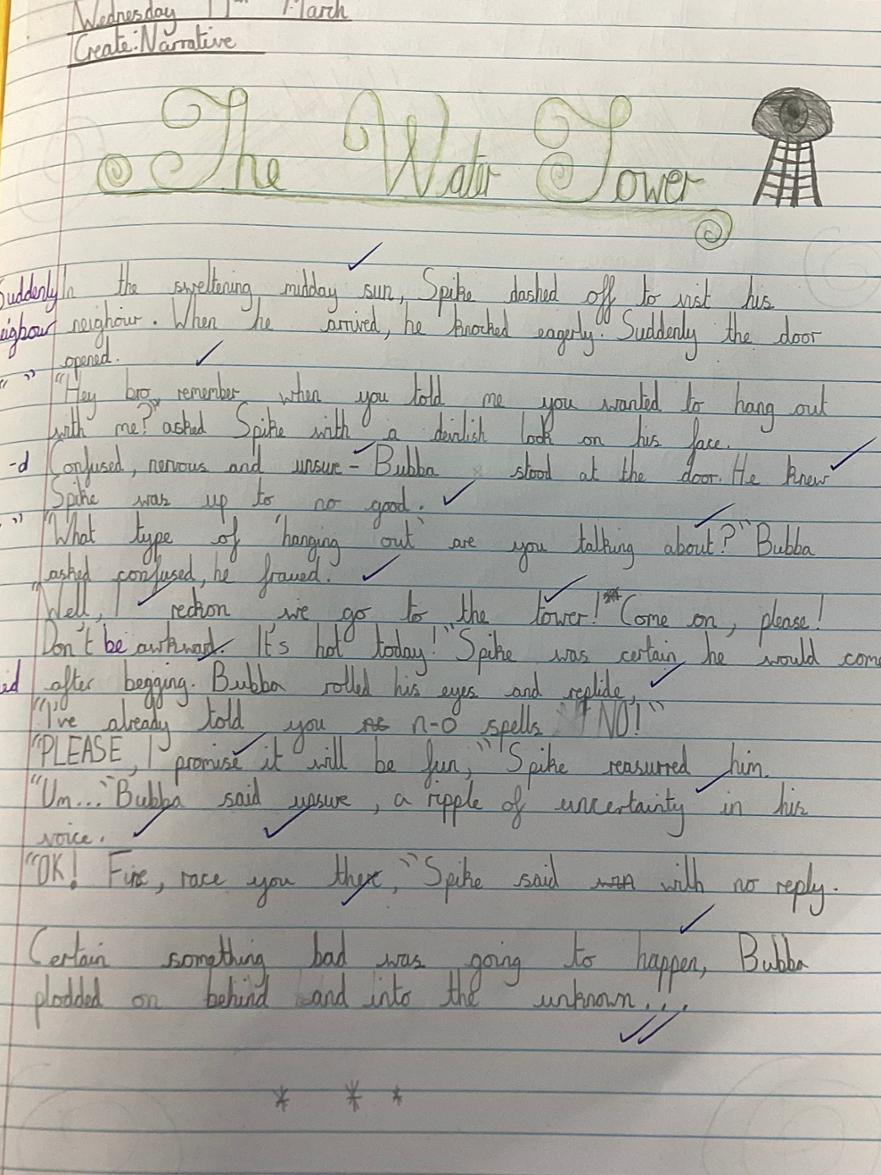 Wednesday 11th March
Create: Narrative
The Water Tower
Suddenly In the sweltering midday sun, Spike dashed off to visit his
neighbour neighour. When he arrived, he knocked eagerly. Suddenly the door
opened.
“ ” “Hey bro, remember when you told me you wanted to hang out
with me?” asked Spike with a devilish look on his face.
-d Confused, nervous and unsure – Bubba stood at the door. He knew
Spike was up to no good.
” “What type of ‘hanging out’ are you talking about?” Bubba
asked confused, he froued.
“Well, I reckon we go to the tower! Come on, please!
Don't be awkward. It's hot today!” Spike was certain he would come
ied after begging. Bubba rolled his eyes and replide,
“I've already told you n-o spells NO!”
“PLEASE, I promise it will be fun,” Spike reasurred him.
“Um...” Bubba said unsure, a ripple of uncertainty in his
voice.
“OK! Fine, race you there,” Spike said with no reply.
Certain something bad was going to happen, Bubba
plodded on behind and into the unknown...
* * *